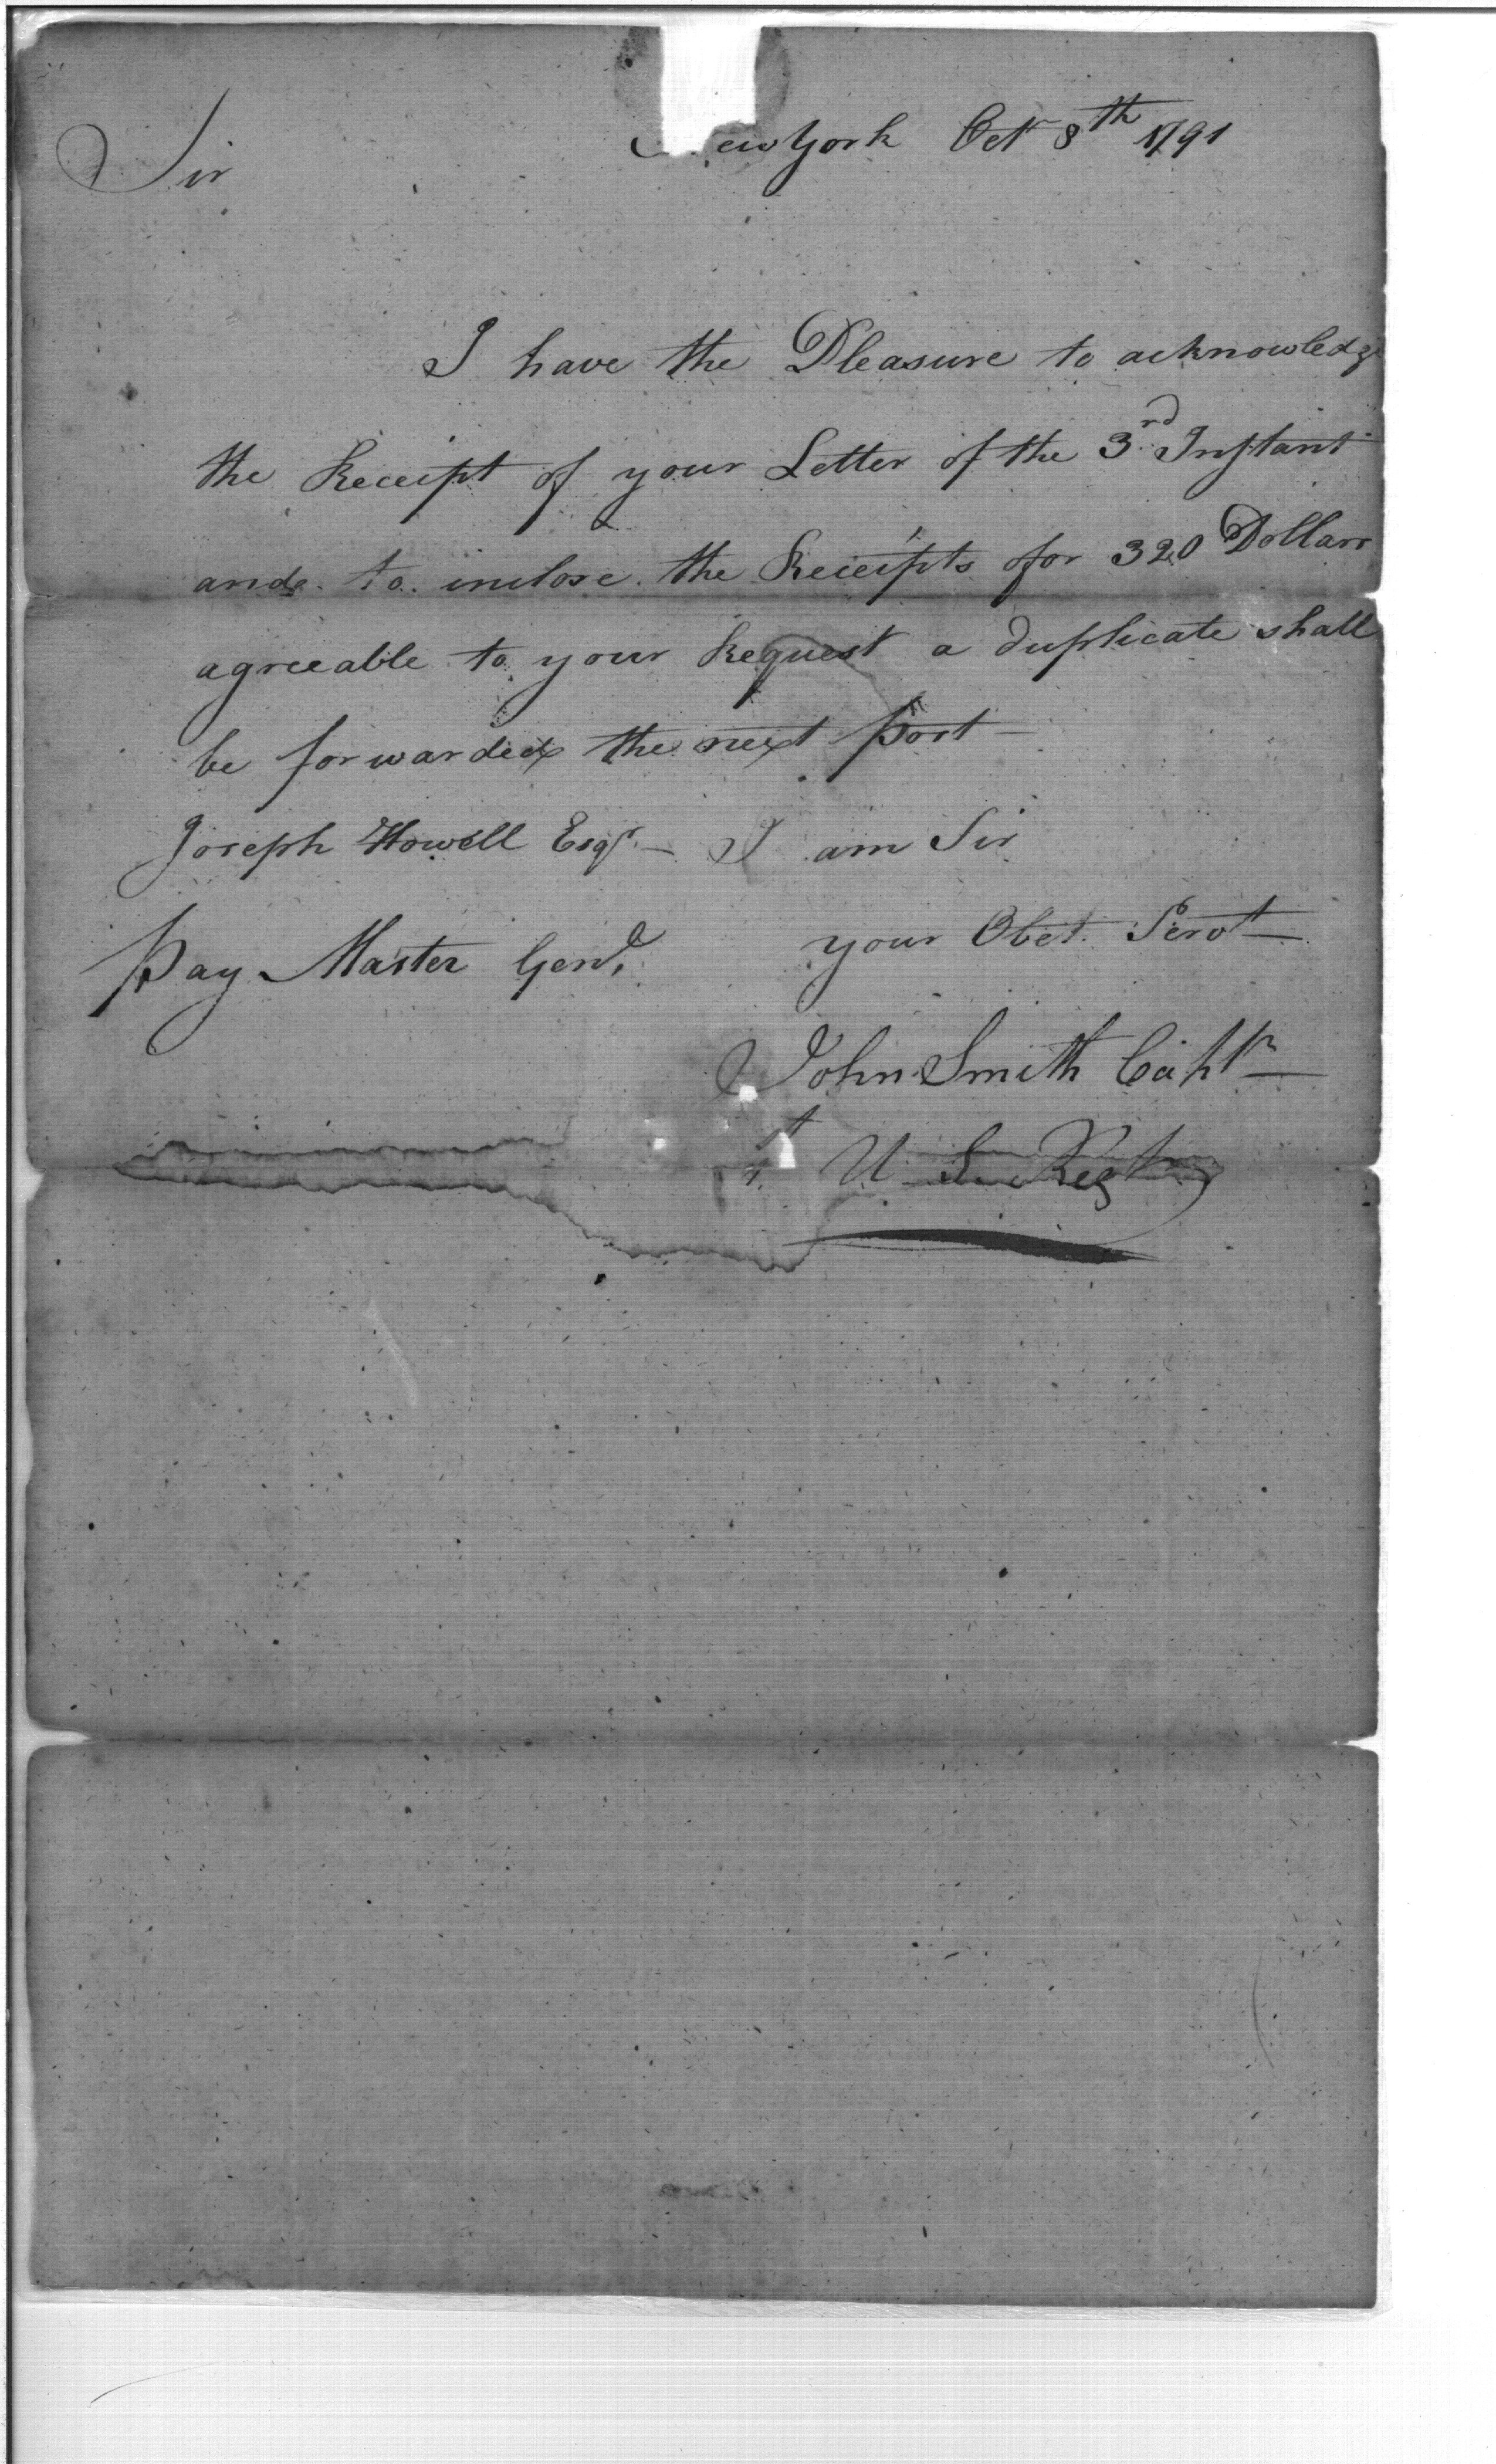 ew York Oct 8th 1791
Sir
I have the Pleasure to acknowledge
the Receipt of your Letter of the 3rd Instant
and to inclose the Receipts for 320 Dollars
agreeable to your Request a duplicate shall
be forwarded the next post
Joseph Howell Esqr. — I am Sir
Pay Master Genl. your Obet. Servt
John Smith Captn
t U S Regt